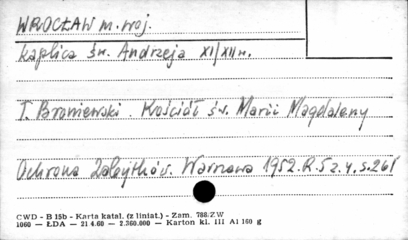 WROCŁAW m. woj.
kaplica św. Andrzeja XI/XII w.
T. Broniewski. Kościół św. Marii Magdaleny
Ochrona Zabytków. Warszawa 1952. R. 5 z. 4, s. 261
CWD - B 15b - Karta katal. (z liniat.) - Zam. 788/ZW
1060 — ŁDA — 21 4.60 — 2.360.000 — Karton kl. III A1 160 g